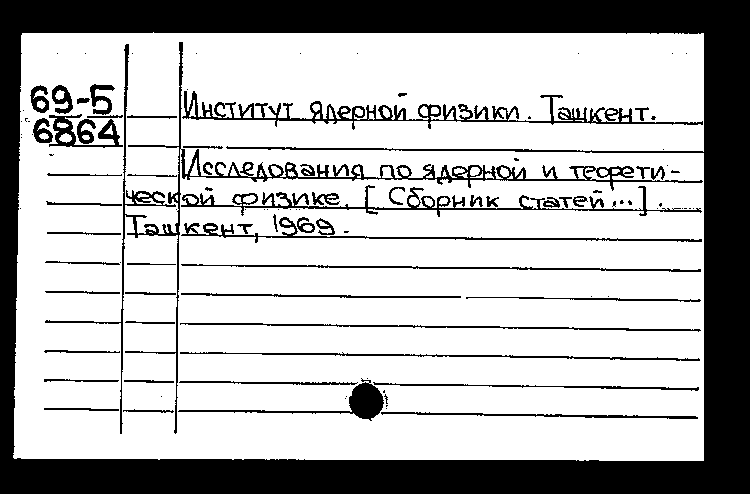 69-5
6864
Институт ядерной физики. Ташкент.
Исследования по ядерной и теорети-
ческой физике. [Сборник статей...].
Ташкент, 1969.